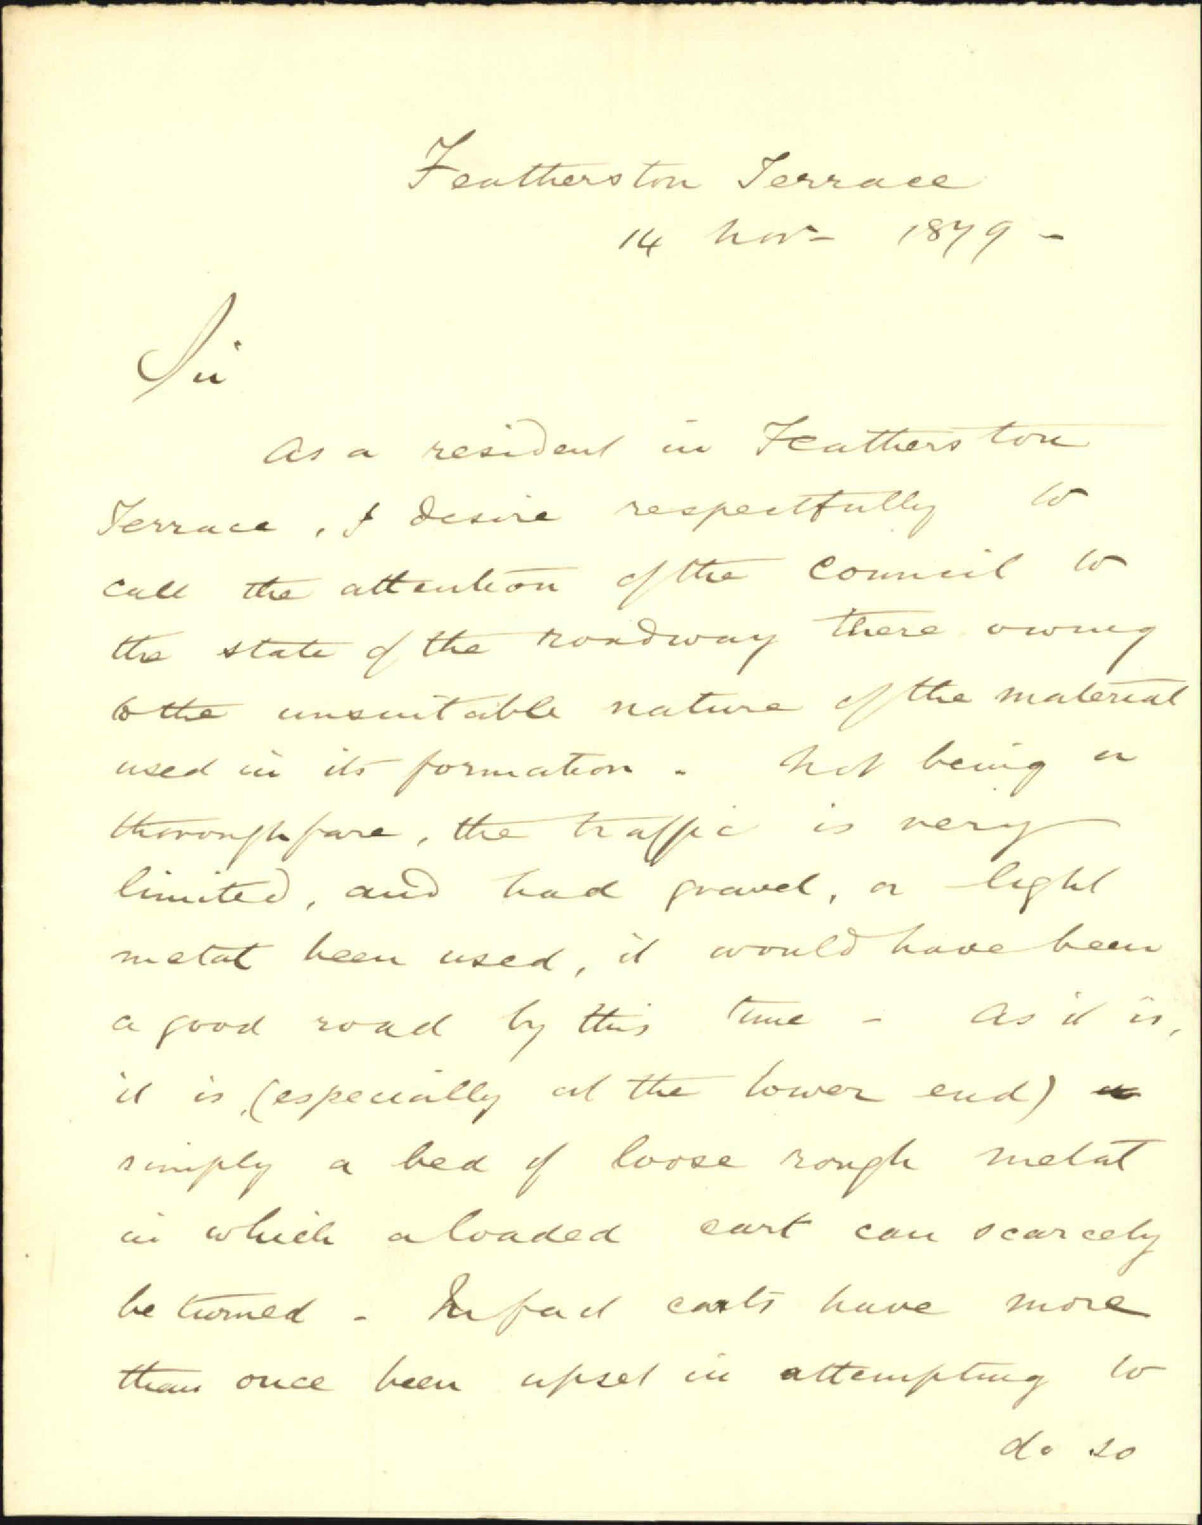 Featherston Terrace
14 Nov - 1879 -
Sir
As a resident in Featherston
Terrace, I desire respectfully to
call the attention of the Council to
the state of the roadway there owing
to the unsuitable nature of the material
used in its formation - Not being a
thoroughfare, the traffic is very
limited, and had gravel, or light
metal been used, it would have been
a good road by this time - As it is,
it is (especially at the lower end)
simply a bed of loose rough metal
in which a loaded cart can scarcely
be turned - In fact carts have more
than once been upset in attempting to
do so